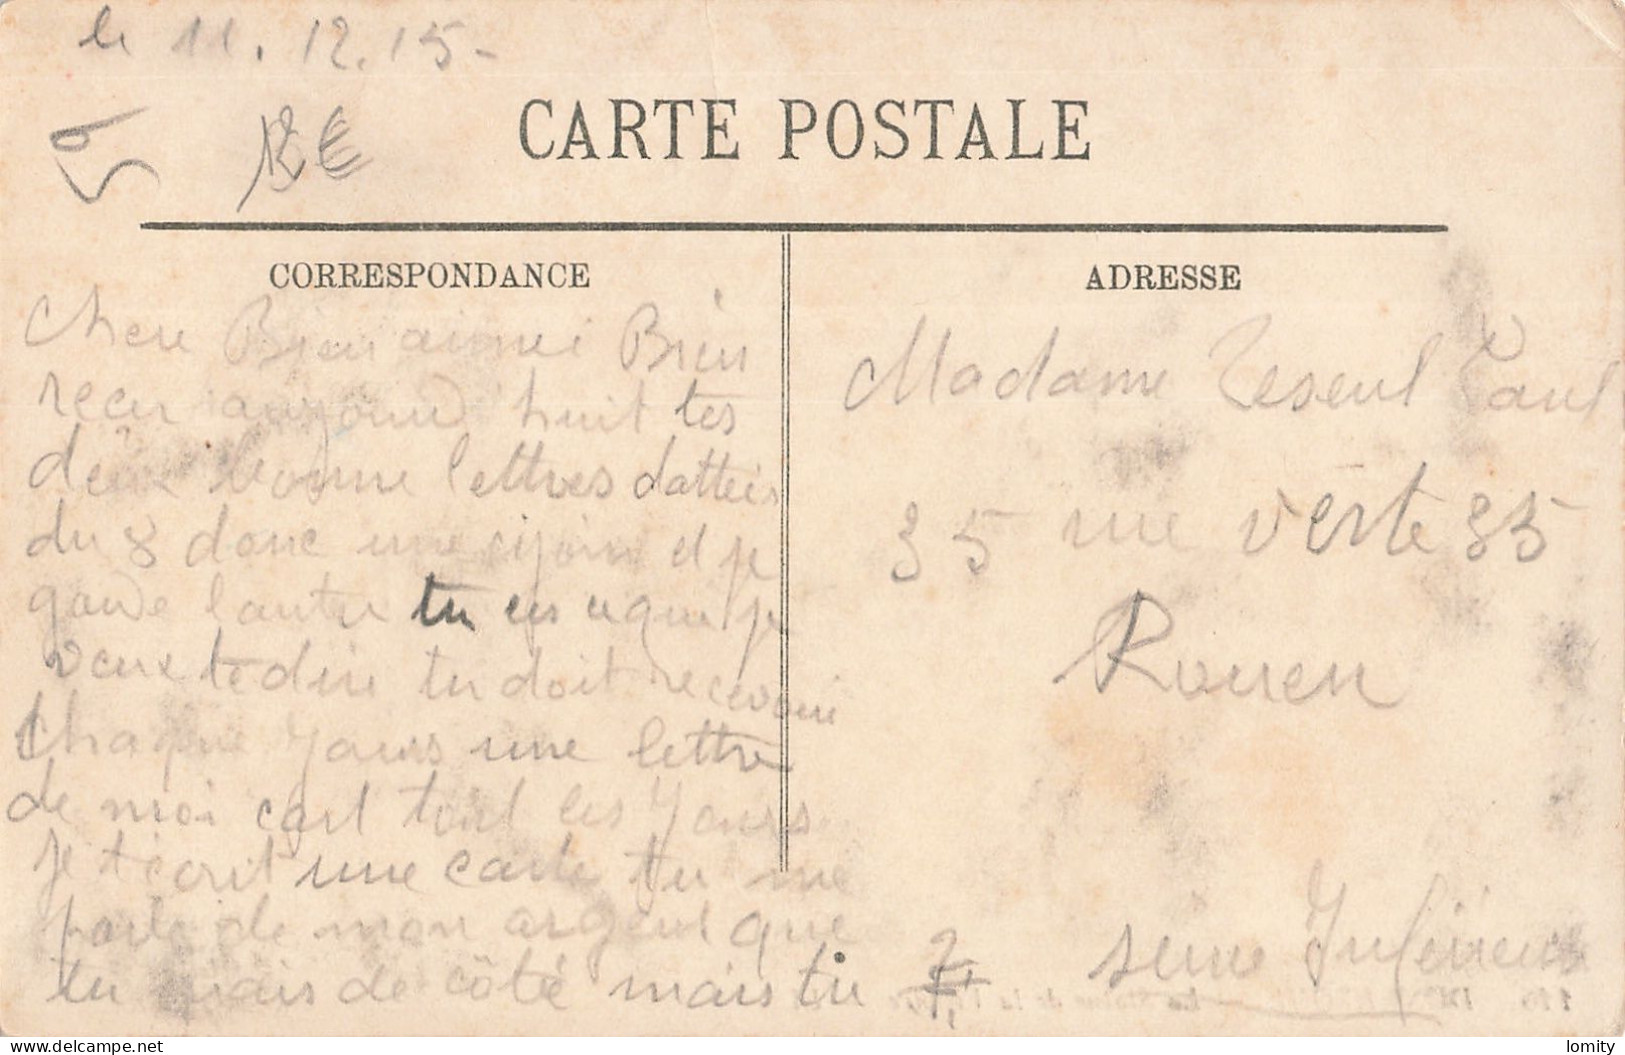 le 11.12.15-
CARTE POSTALE
CORRESPONDANCE
Chere Bien aimei Bien
recu aujourd huit tes
deux bonne lettres datteis
du 8 donc une cijoin et je
garde l'autre tu es ce que je
veux te dire tu doit recevoir
chaque Jours une lettre
de moi cart tout les Jours
je t'ecrit une carte tu me
parle de mon argent que
tu mais de côté mais tu
ADRESSE
Madame Teseul Paul
35 rue verte 35
Rouen
seine Inferieure
2€
lomity
delcampe.net